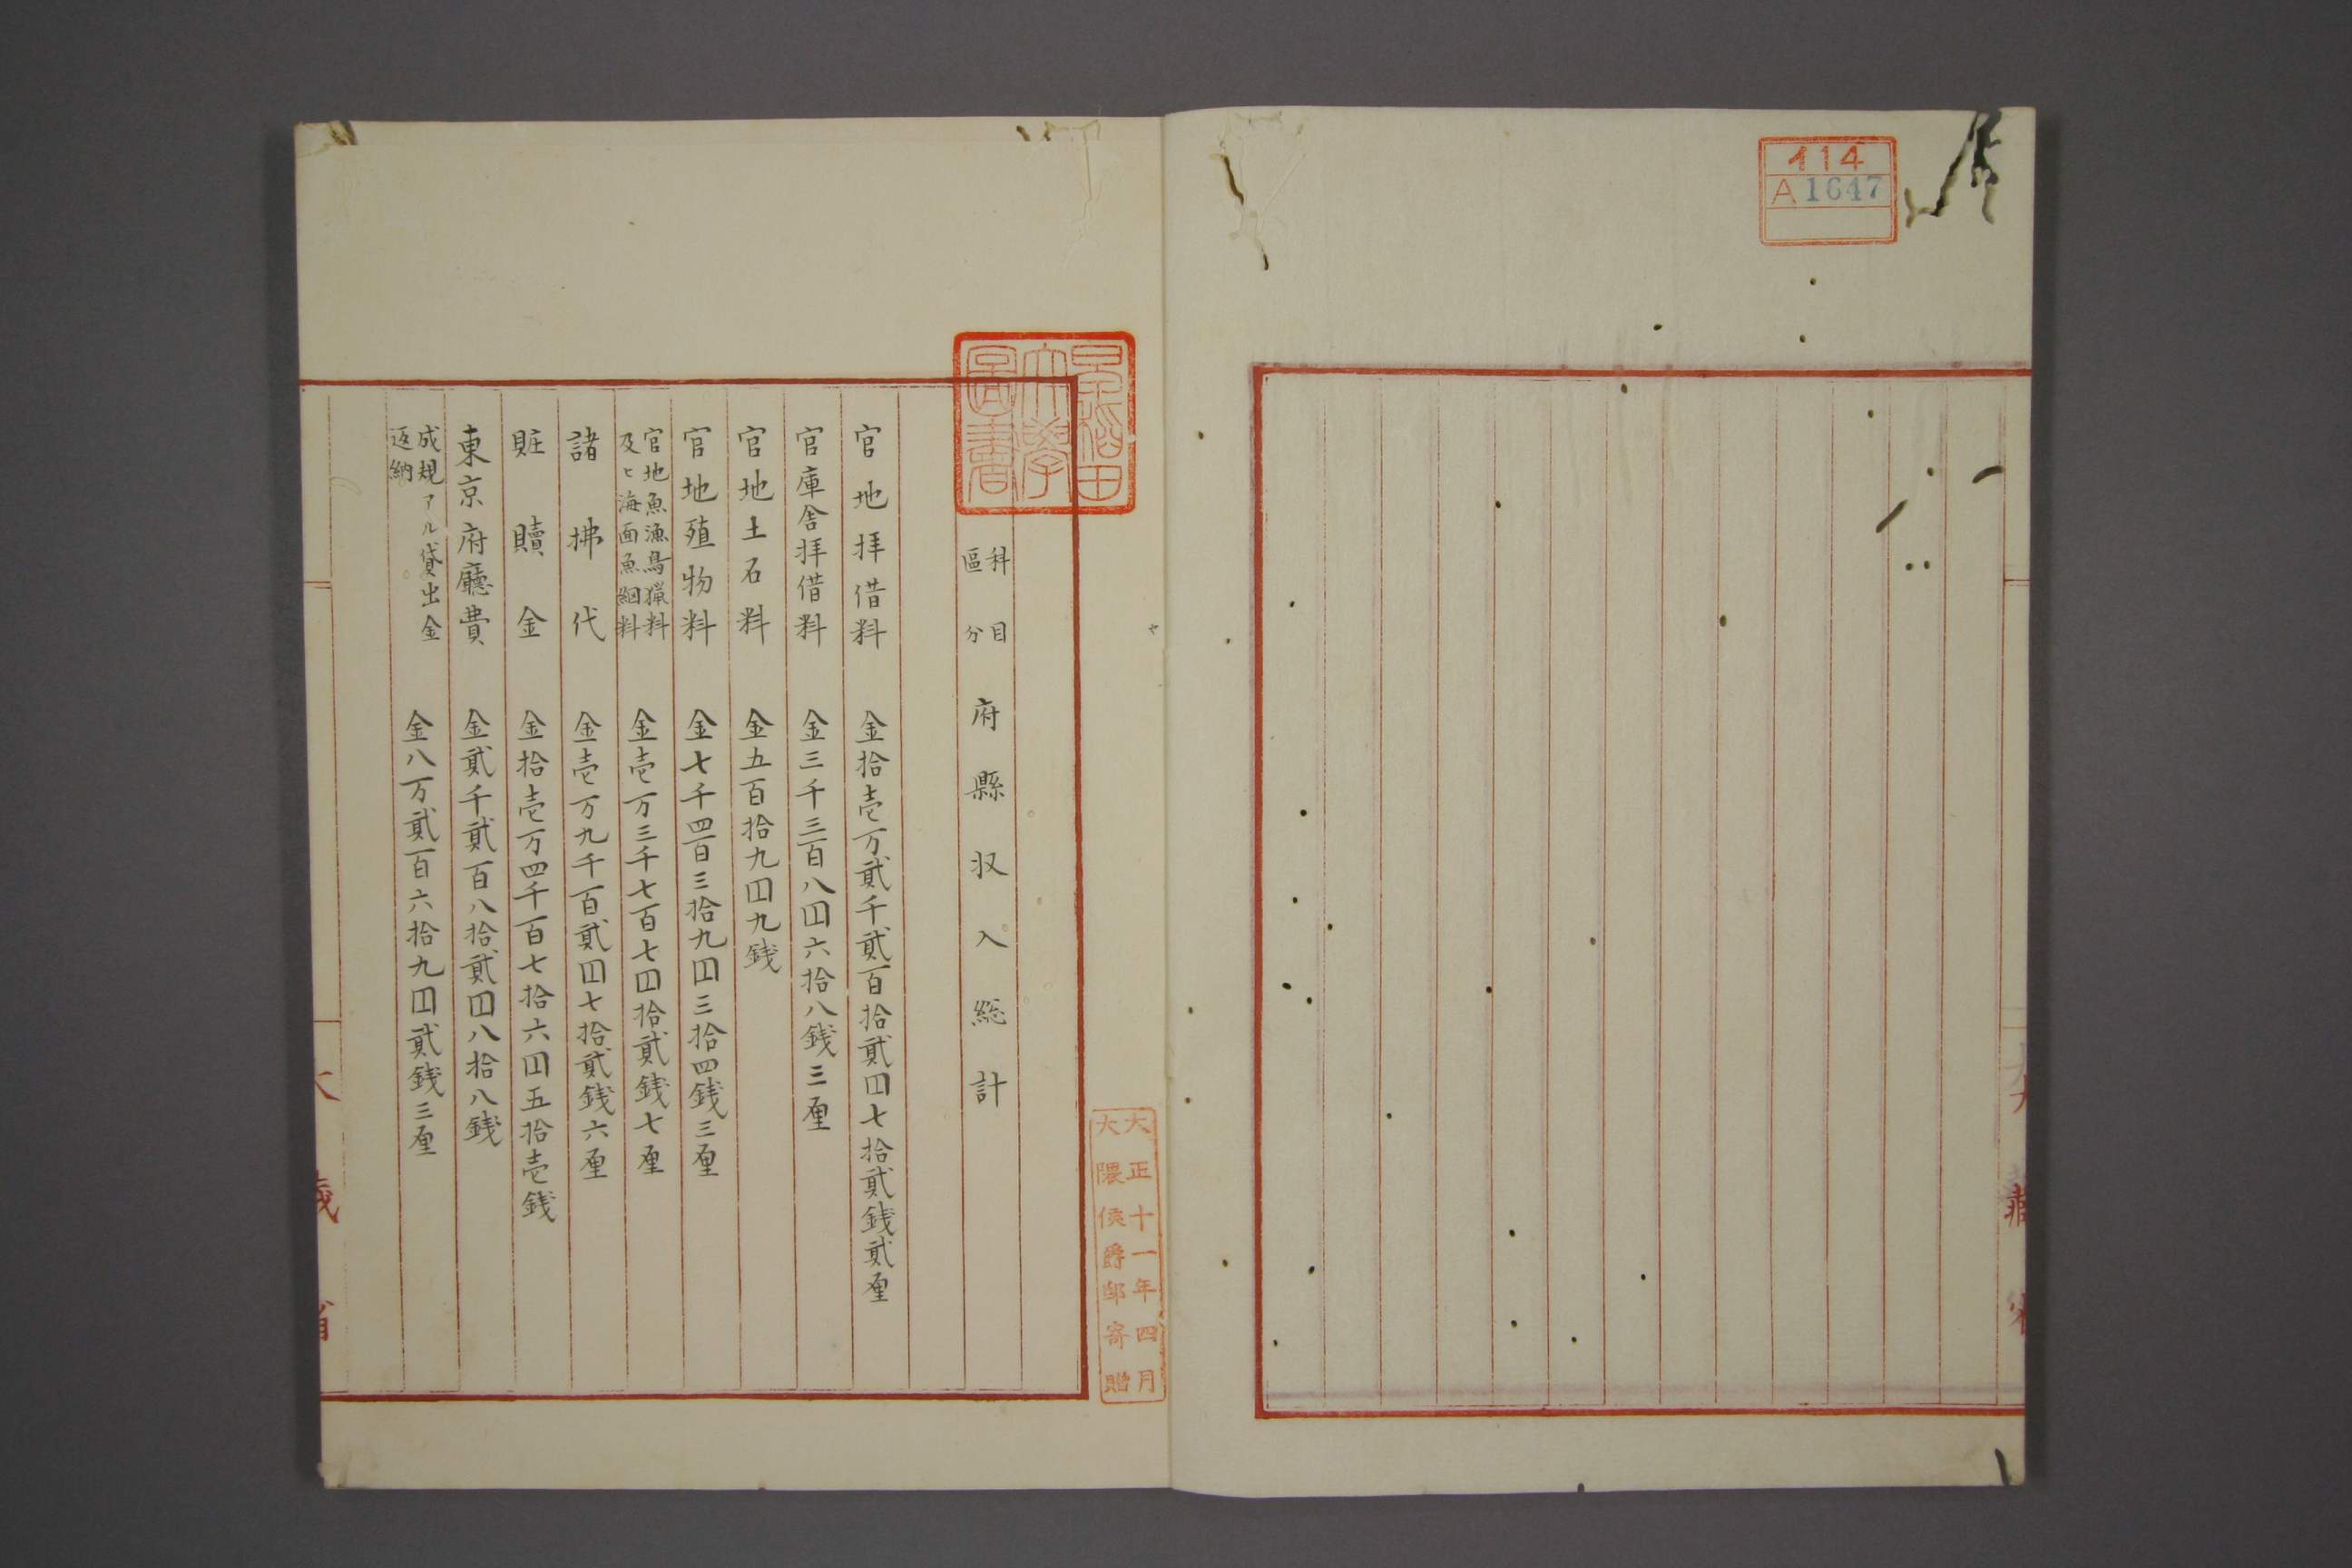 114
A 1647
早稲田
大學
圖書
大正十一年四月
大隈侯爵邸寄贈
科目
區分
府縣収入総計
官地拝借料 金拾壱万貳千貳百拾貳囗七拾貳銭貳厘
官庫舎拝借料 金三千三百八囗六拾八銭三厘
官地土石料 金五百拾九囗九銭
官地殖物料 金七千四百三拾九囗三拾四銭三厘
官地魚漁鳥猟料
及ヒ海面魚綑料
金壱万三千七百七囗拾貳銭七厘
諸拂代 金壱万九千百貳囗七拾貳銭六厘
賍贖金 金拾壱万四千百七拾六囗五拾壱銭
東京府廳費 金貳千貳百八拾貳囗八拾八銭
成規アル貸出金
返納
金八万貳百六拾九囗貳銭三厘